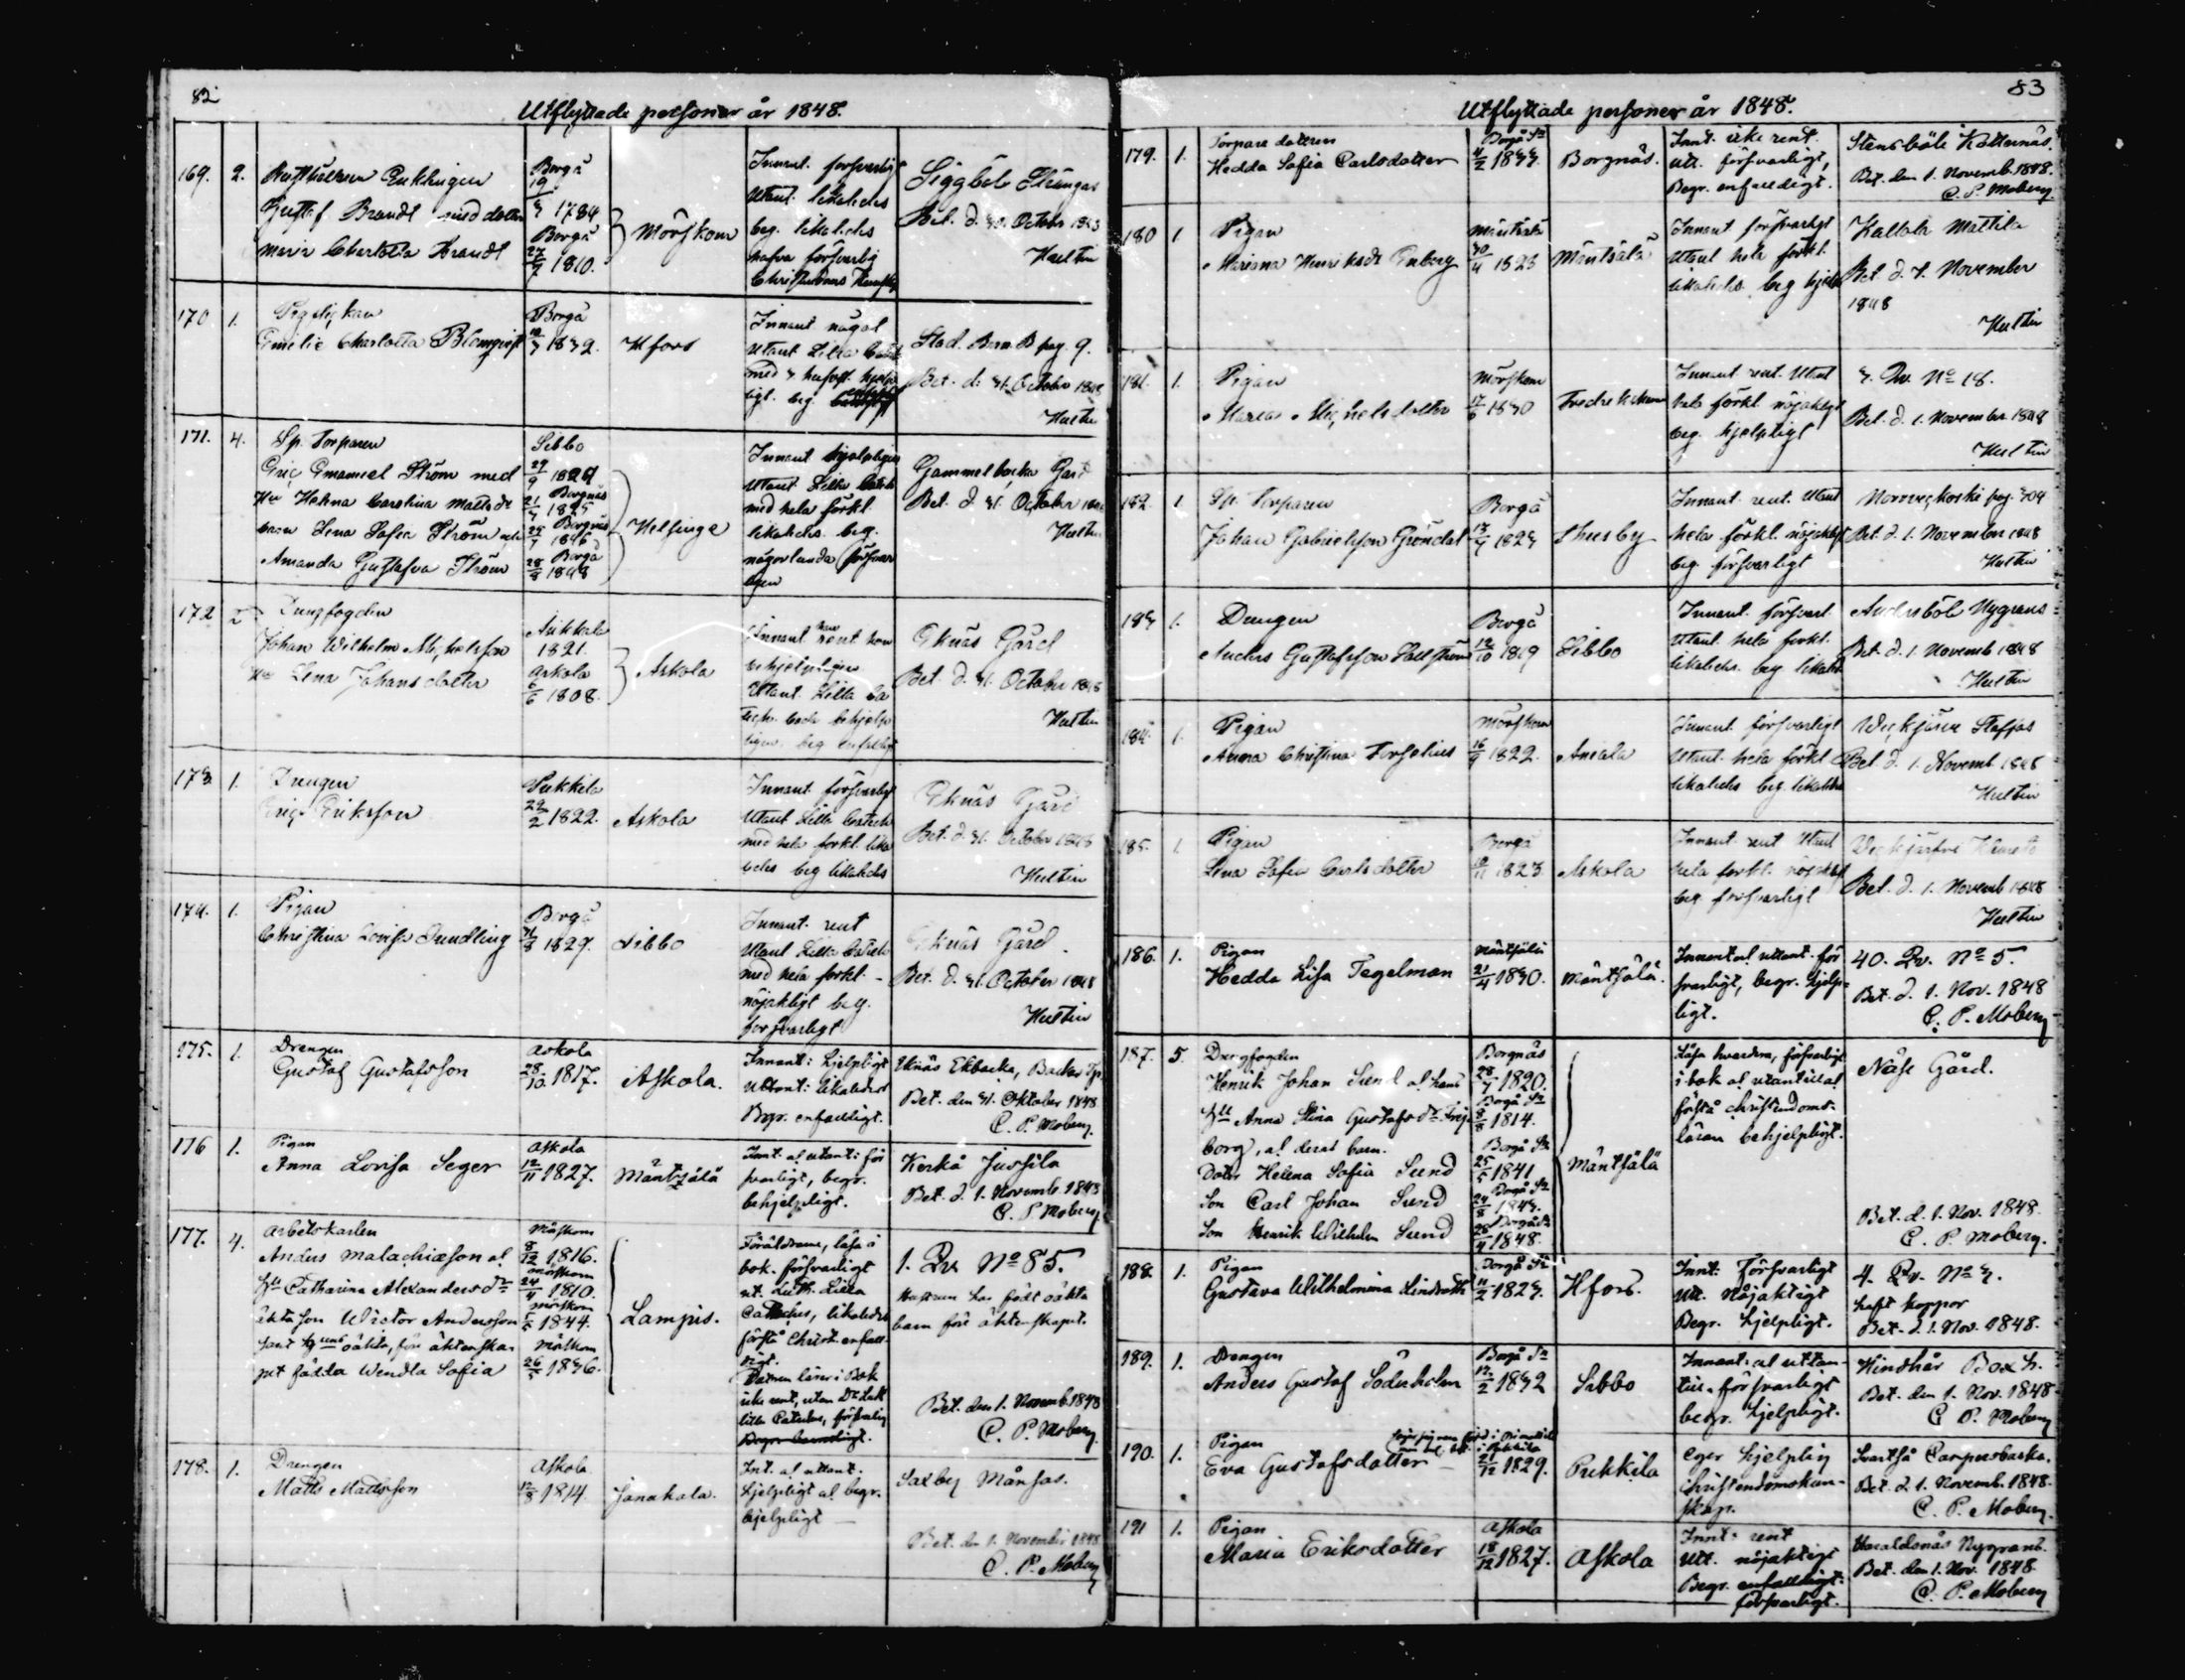 82
Utflyttade personer år 1848.
169. 2. Enklingen
Gustaf Brandt med dotter
Maria Charlotta Brandt
Borgå
19/3 1784
Borgå
27/7 1810.
Mörskom
Innant. försvarlig
Utant. likaledes
beg. likaledes
hafva försvarlig
Christendoms
Siggböle Strängas
Bet. d. 31. October 1848
Hultin
170. 1.
Emilie Charlotta Blomqvist
Borgå
1832.
Hfors
Innant något
Utant Lilla
med
beg.
Stad. Barn B pag. 9.
Bet. d. 31. October 1848
Hultin
171. 4. Sp. Torparen
Eric Emanuel Ström med
Hu Helena Carolina Mattsdr
barn Lena Sofia Ström och
Amanda Gustafva Ström
Sibbo
29/9 1821
Borgnäs
1825
Borgnäs
1846
Borgå
28/8 1848
Helsinge
Innant hjelpligen
Utant Lilla
med hela förkl.
likaledes beg.
någorlunda försvar
ligen
Gammelbacka Gård
Bet. d. 31. October 1848
Hultin
172 2 Drengfogden
Johan Wilhelm Michelsson
Hu Lena Johansdotter
1821.
Askola
6/6 1808.
Askola
Innant han rent hon
behjelpligen
Utant. Lilla Ca
behjelp
ligen. beg. enfaldigt
Eknäs Gård
Bet. d. 31. October 1848
Hultin
173 1. Drengen
Eric Eriksson
Pukkila
29/2 1822.
Askola
Innant försvarligt
Utant Lilla
med hela förkl. lika
ledes beg likaledes
Eknäs Gård
Bet. d. 31. October 1848
Hultin
174. 1. Pigan
Christina Lovisa Sundling
Borgå
1829.
Sibbo
Innant. rent
Utant Lilla
med hela förkl.
nöjaktigt beg.
försvarligt
Eknäs Gård
Bet. d. 31. October 1848
Hultin
175. 1. Drengen
Gustaf Gustafsson
Askola
28/10 1817.
Askola.
Innant: hjelpligt
Utant: likaledes
Begr. enfaldigt.
Eknäs Ekbacka, Backas Tp
Bet. den 31. Oktober 1848
C. P. Moberg.
176 1. Pigan
Anna Lovisa Seger
Askola
12/11 1827.
Mäntsälä
Innt. o. utant: för
svarligt, begr.
behjelpligt.
Kerkå Jussila
Bet. d. 1. Novemb. 1848
C. P. Moberg
177. 4. Arbetskarlen
Anders Malachiæson o.
Hu Catharina Alexandersdr
äkta son Wictor Andersson
samt hustruns oäkta, före äktenska-
pet födda Wendla Sofia
Mörskom
8/12 1816.
Mörskom
24/4 1810.
Mörskom
1844.
Mörskom
26/5 1836.
Lampis.
Föräldrarne, läsa i
bok försvarligt
ut. Luth. Lilla
Catechs, likaledes
förstå Christ. enfal-
digt.
Dottren läser i Bok
icke rent, utan
lilla Cateches, försvarlig
1. Qv. No 85.
Hustrun har födt oäkta
barn före äktenskapet.
Bet. den 1. Novemb. 1848
C. P. Moberg.
178. 1. Drengen
Matts Mattsson
Askola
12/8 1814.
Janakala.
Int. o. utant.
hjelpligt o. begr.
hjelpligt
Saxby Månsas.
Bet. den 1. November 1848
C. P. Moberg
83
Utflyttade personer år 1848.
179. 1. Torpare dottren
Hedda Sofia Carlsdotter
Borgå Sn
4/2 1833.
Borgnäs.
Innt. icke rent.
Utt. försvarligt,
Begr. enfaldigt.
Stensböle Kattarnäs.
Bet. den 1. Novemb. 1848.
C. P. Moberg.
180 1 Pigan
Mariana Henriksdr Enberg
Mäntsälä
30/4 1823
Mäntsälä
Innant försvarligt
Utant hela förkl.
likaledes beg hjelpl
Kallola Mattila
Bet d. 1. November
1848
Hultin
181. 1. Pigan
Maria Michelsdotter
Mörskom
17/6 1830
Fredrikshamn
Innant. rent. Utant
hela förkl. nöjaktigt
beg. hjelpligt
3. Qv. No 18.
Bet. d. 1. November 1848
Hultin
182. 1 Sp. Torparen
Johan Gabrielsson Gröndal
Borgå
1823
Thusby
Innant. rent. Utant
hela förkl. nöjaktigt
beg. försvarligt
Bet. d. 1. November 1848
Hultin
183 1. Drengen
Anders Gustafsson Hallström
Borgå
12/10 1819
Sibbo
Innant. försvarl
Utant. hela förkl.
likaledes. beg likaled
Andersböle Nygrans
Bet. d. 1. Novemb 1848
Hultin
184. 1. Pigan
Anna Christina Forselius
Mörskom
16/9 1822.
Aniala
Innant. försvarligt
Utant. hela förkl
likaledes beg. likaledes
Wekjärvi Staffas
Bet. d. 1. Novemb 1848
Hultin
185. 1. Pigan
Lena Sofia Carlsdotter
Borgå
1823
Askola
Innant. rent Utant
hela förkl. nöjaktigt
beg försvarligt
Bet. d. 1. Novemb 1848
Hultin
186. 1. Pigan
Hedda Lisa Tegelman
Mäntsälä
21/4 1830.
Mäntsälä.
Innant o. utant. för
svarligt, begr. hjelp-
ligt.
40. Qv. No 5.
Bet. d. 1. Nov. 1848
C. P. Moberg
187. 5. Drengfogden
Henrik Johan Sund o. hans
Hu Anna Stina Gustafsdr Frej-
borg, o. deras barn.
Dotr Helena Sofia Sund
Son Carl Johan Sund
Son Henrik Wilhelm Sund
Borgnäs
28/7 1820.
Borgå Sn
8/8 1814.
Borgå Sn
25/5 1841
Borgå Sn
24/8 1843.
Borgå Sn
28/4 1848.
Mäntsälä
Läsa hvardera, försvarligt
i bok o. utantill o.
förstå christendoms-
läran behjelpligt.
Näse Gård.
Bet. d. 1. Nov. 1848.
C. P. Moberg.
188. 1. Pigan
Gustava Wilhelmina Lindroth
Borgå Sn
11/2 1823.
Hfors.
Innt: Försvarligt
Utt. Nöjaktigt
Begr. hjelpligt.
4. Qv. No 3.
haft koppor
Bet. d. 1. Nov. 1848.
189. 1. Drengen
Anders Gustaf Söderholm
Borgå Sn
12/2 1832
Sibbo
Innant: o. uttan-
till. försvarligt
begr. hjelpligt.
Hindhår Box h.
Bet. den 1. Nov. 1848
C. P. Moberg
190. 1. Pigan
Eva Gustafsdotter
i Pukkila
21/12 1829.
Pukkila
Eger hjelplig
christendomskun-
skap.
Svartså Carpersbacka.
Bet. d. 1. Novemb. 1848.
C. P. Moberg.
191 1. Pigan
Maria Eriksdotter
Askola
18/12 1827.
Askola
Innt: rent
Utt. nöjaktigt
Begr. enfaldigt.
försvarligt.
Haraldsnäs Nygranb.
Bet. den 1. Nov. 1848
C. P. Moberg